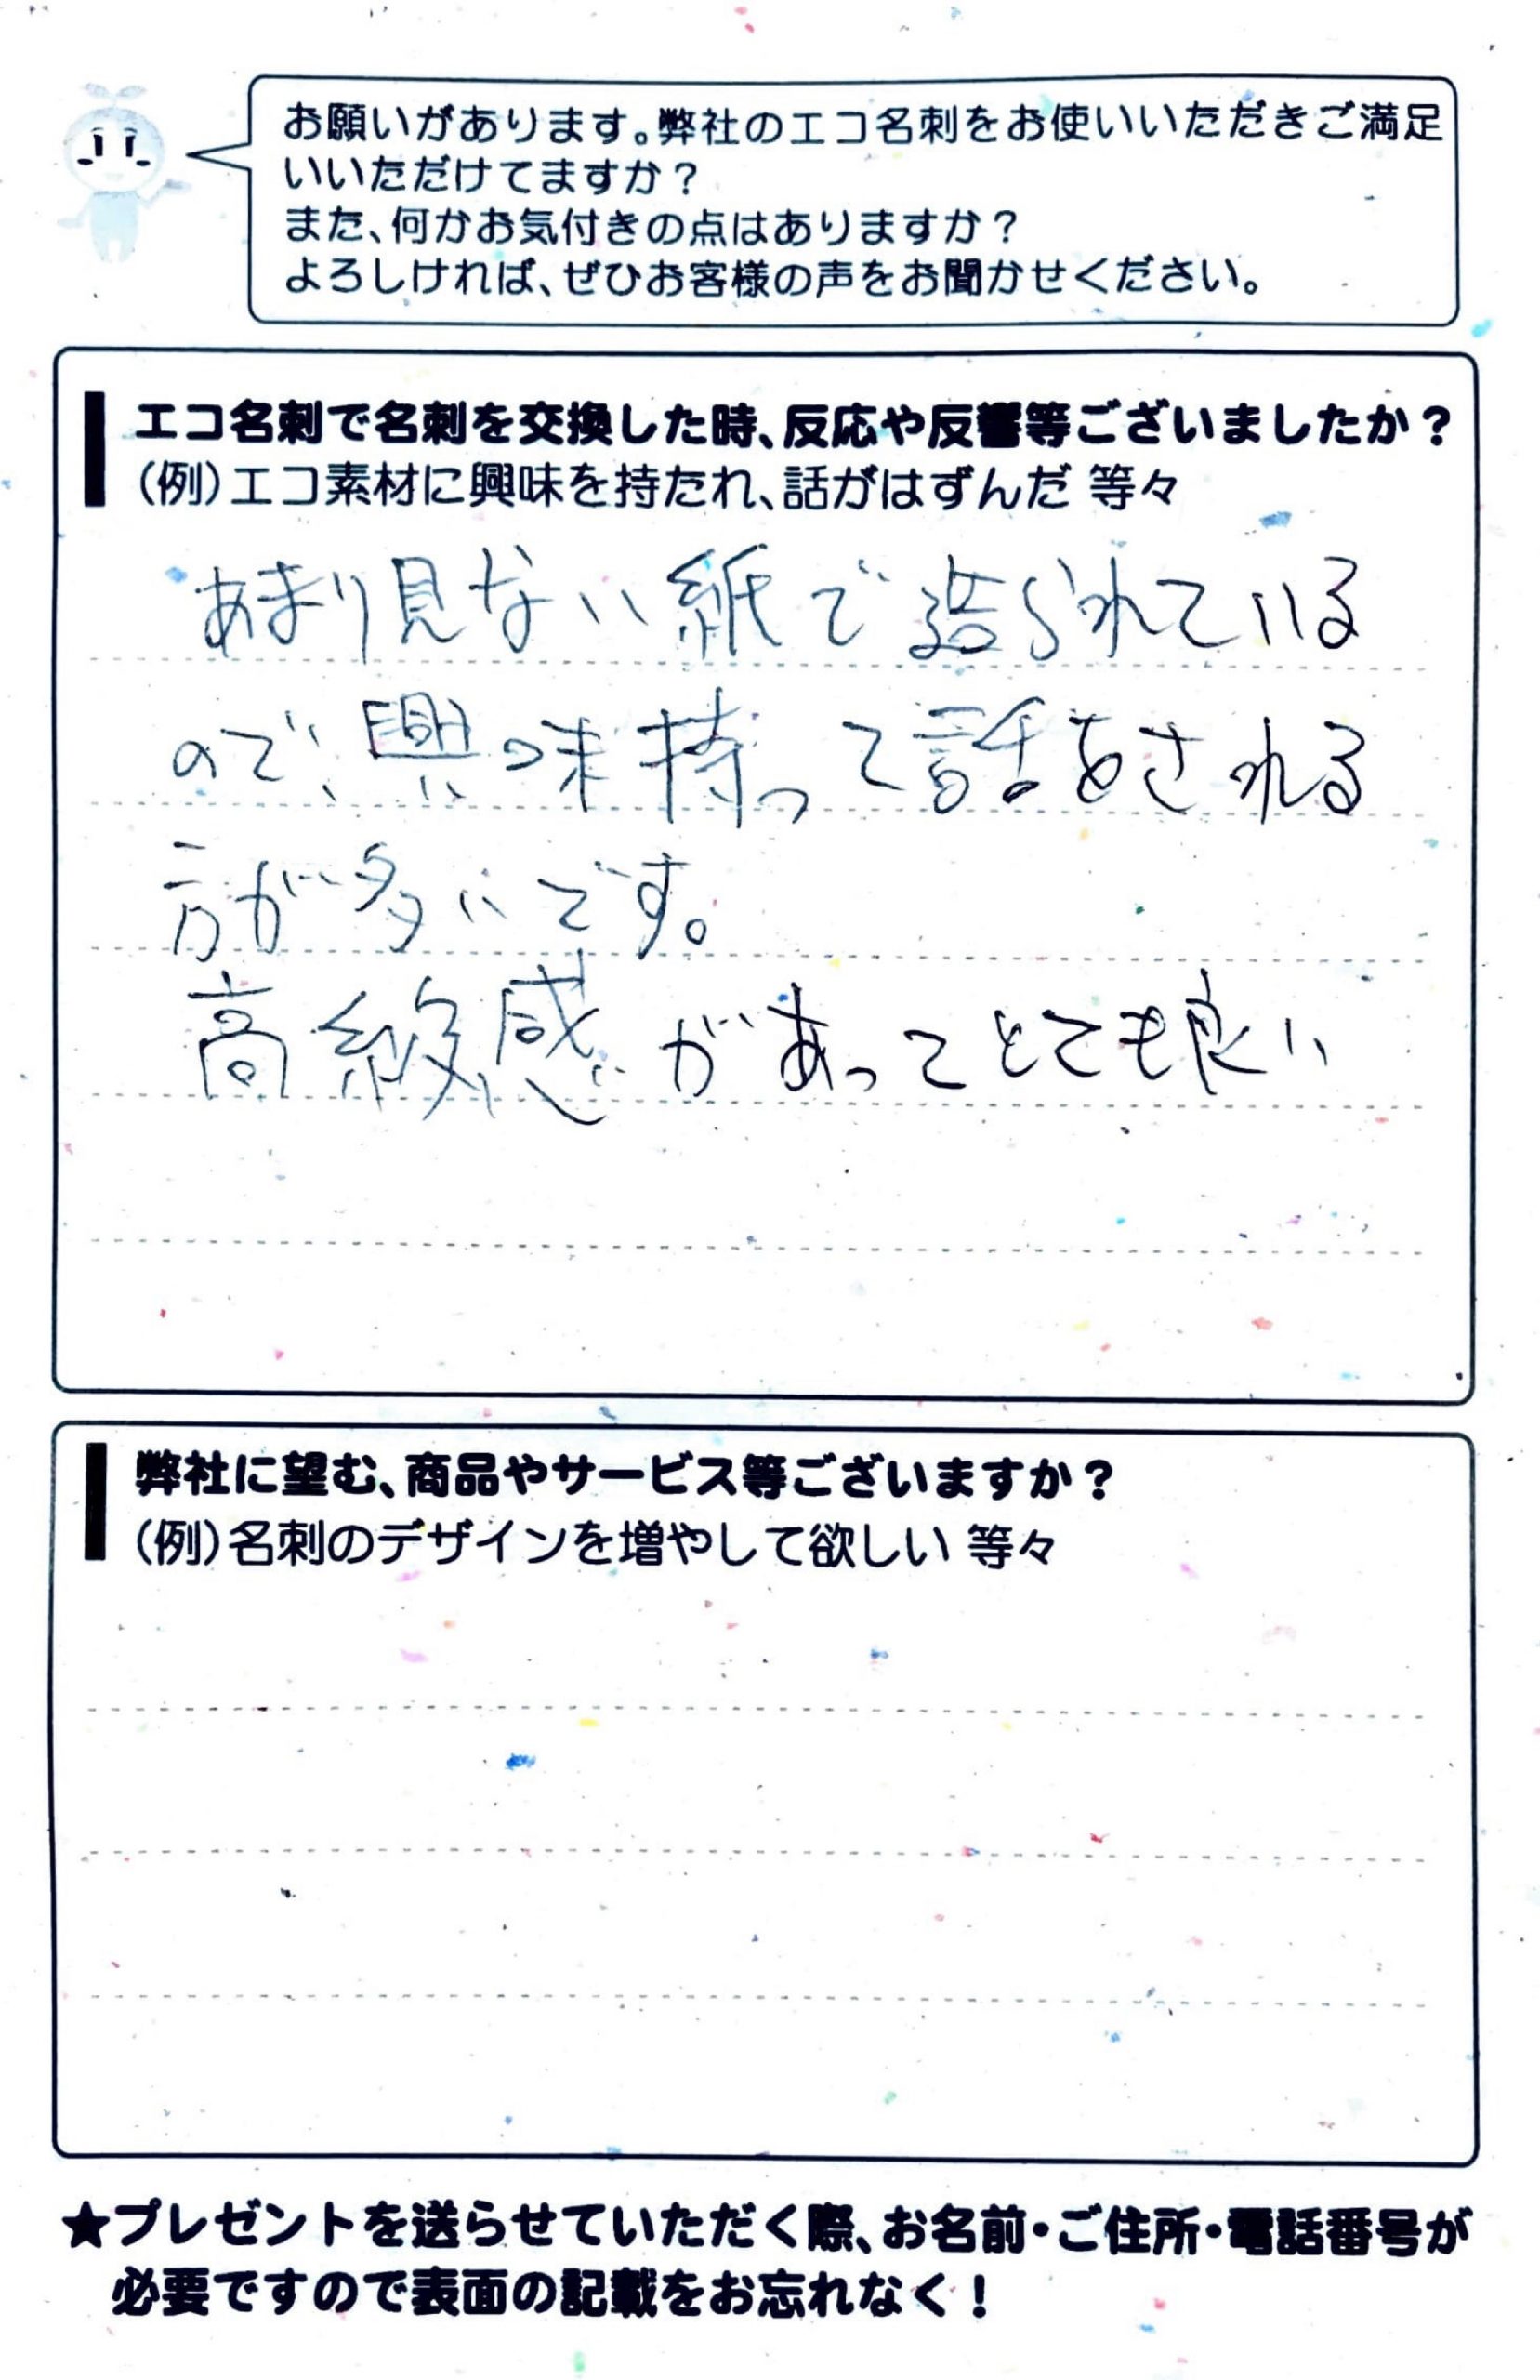 お願いがあります。弊社のエコ名刺をお使いいただきご満足
いいただけてますか？
また、何かお気付きの点はありますか？
よろしければ、ぜひお客様の声をお聞かせください。
エコ名刺で名刺を交換した時、反応や反響等ございましたか？
（例）エコ素材に興味を持たれ、話がはずんだ 等々
あまり見ない紙で造られている
ので、興味持って話をされる
方が多いです。
高級感があってとても良い
弊社に望む、商品やサービス等ございますか？
（例）名刺のデザインを増やして欲しい 等々
★プレゼントを送らせていただく際、お名前・ご住所・電話番号が
必要ですので表面の記載をお忘れなく！